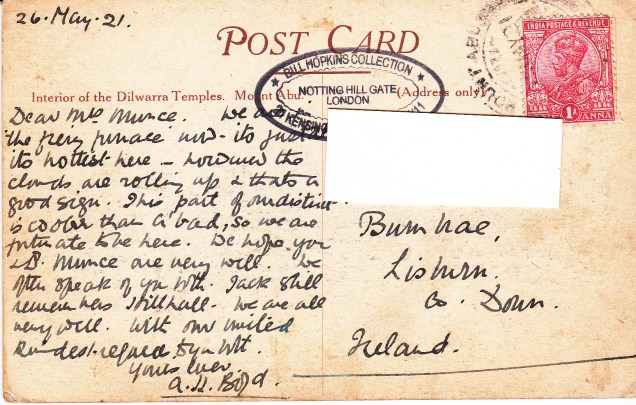 26. May. 21.
POST CARD
INDIA POSTAGE & REVENUE
1A ANNA
MOUNT ABU
BILL HOPKINS COLLECTION
NOTTING HILL GATE
LONDON
KENSING
W11
Interior of the Dilwarra Temples. Mount Abu.
(Address only)
Dear Mrs Munce. We are
the fiery furnace now - its just
its hottest here - however the
clouds are rolling up & thats a
good sign. This part of our district
is cooler than A'bad, so we are
fortunate to be here. We hope you
& Dr. Munce are very well. We
often speak of you both. Jack still
remembers Hillhall. We are all
very well. With our united
kindest regards to you both.
Yours ever,
A. H. Boyd.
Burnhae,
Lisburn.
Co. Down.
Ireland.